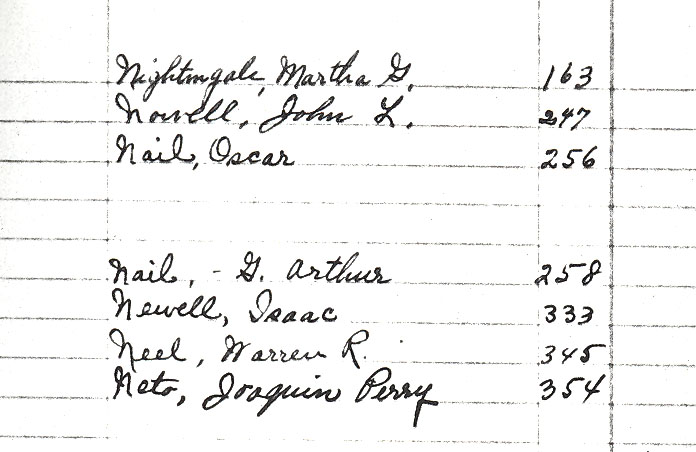 Nightingale, Martha G. 163
Nowell, John L. 247
Nail, Oscar 256
Nail, - G. Arthur 258
Newell, Isaac 333
Neel, Warren R. 345
Neto, Joaquin Perry 354